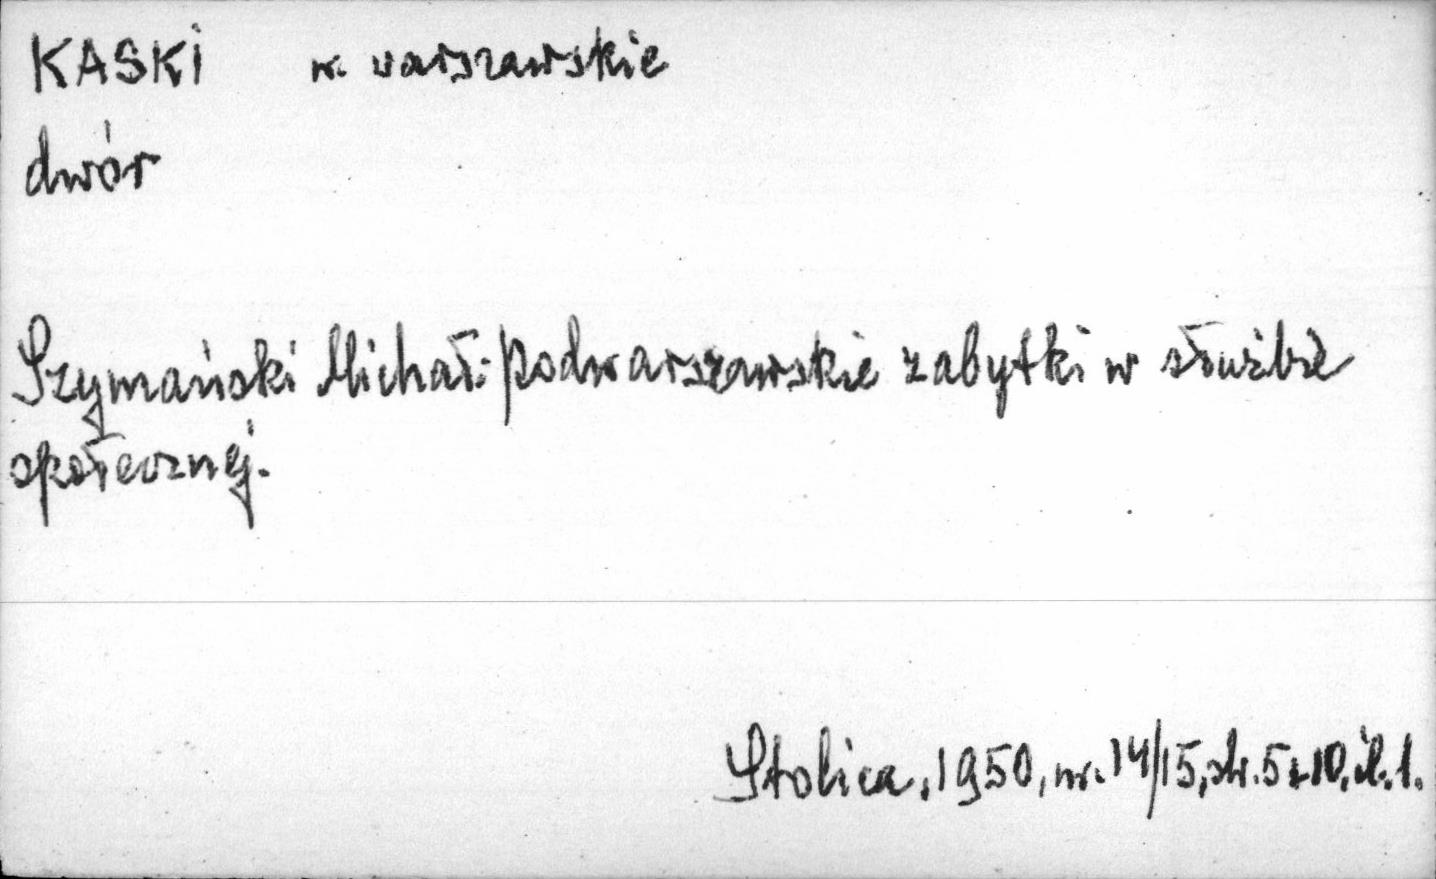 KASKI w. warszawskie
dwór
Szymański Michał: Podwarszawskie zabytki w służbie
społecznej.
Stolica, 1950, nr. 14/15, str. 5 i 10, il. 1.